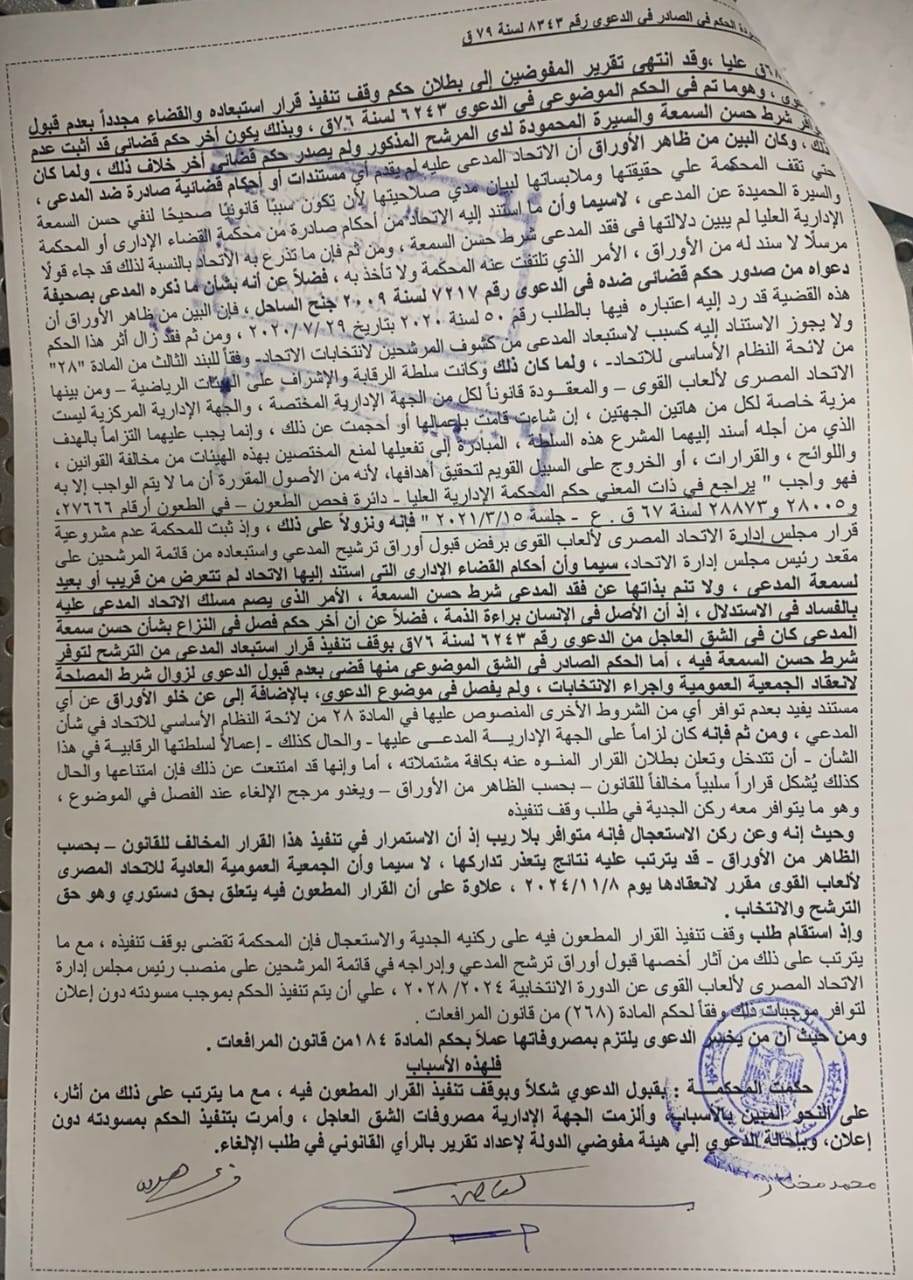 الحكم في الصادر في الدعوى رقم ٨٣٤٣ لسنة ٧٩ ق
٦٨ق عليا ،وقد انتهى تقرير المفوضين إلى بطلان حكم وقف تنفيذ قرار استبعاده والقضاء مجدداً بعدم قبول
، وهوما تم في الحكم الموضوعي في الدعوى ٦٢٤٣ لسنة ٧٦ق ، وبذلك يكون أخر حكم قضائي قد أثبت عدم
شرط حسن السمعة والسيرة المحمودة لدى المرشح المذكور ولم يصدر حكم قضائي أخر خلاف ذلك ، ولما كان
ذلك ، وكان البين من ظاهر الأوراق أن الاتحاد المدعى عليه لم يقدم أي مستندات أو أحكام قضائية صادرة ضد المدعى ،
حتي تقف المحكمة علي حقيقتها وملابساتها لبيان مدي صلاحيتها لأن تكون سببًا قانونيًا صحيحًا لنفي حسن السمعة
والسيرة الحميدة عن المدعى ، لاسيما وأن ما استند إليه الاتحاد من أحكام صادرة من محكمة القضاء الإدارى أو المحكمة
الإدارية العليا لم يبين دلالتها في فقد المدعى شرط حسن السمعة ، ومن ثم فإن ما تذرع به الاتحاد بالنسبة لذلك قد جاء قولًا
مرسلًا لا سند له من الأوراق ، الأمر الذي تلتفت عنه المحكمة ولا تأخذ به ، فضلاً عن أنه بشأن ما ذكره المدعى بصحيفة
دعواه من صدور حكم قضائى ضده في الدعوى رقم ٧٢١٧ لسنة ٢٠٠٩ جنح الساحل ، فإن البين من ظاهر الأوراق أن
هذه القضية قد رد إليه اعتباره فيها بالطلب رقم ٥٠ لسنة ٢٠٢٠ بتاريخ ٢٠٢٠/٧/٢٩ ، ومن ثم فقد زال أثر هذا الحكم
ولا يجوز الاستناد إليه كسبب لاستبعاد المدعى من كشوف المرشحين لانتخابات الاتحاد- وفقاً للبند الثالث من المادة "٢٨"
من لائحة النظام الأساسى للاتحاد- ، ولما كان ذلك وكانت سلطة الرقابة والإشراف على الهيئات الرياضية – ومن بينها
الاتحاد المصرى لألعاب القوى – والمعقـودة قانوناً لكل من الجهة الإدارية المختصة ، والجهة الإدارية المركزية ليست
مزية خاصة لكل من هاتين الجهتين ، إن شاءت قامت بإعمالها أو أحجمت عن ذلك ، وإنما يجب عليهما التزاماً بالهدف
الذي من أجله أسند إليهما المشرع هذه السلطة ، المبادرة إلى تفعيلها لمنع المختصين بهذه الهيئات من مخالفة القوانين ،
واللوائح ، والقرارات ، أو الخروج على السبيل القويم لتحقيق أهدافها، لأنه من الأصول المقررة أن ما لا يتم الواجب إلا به
فهو واجب " يراجع في ذات المعني حكم المحكمة الإدارية العليا - دائرة فحص الطعون – في الطعون أرقام ٢٧٦٦٦،
و٢٨٠٠٥ و٢٨٨٧٣ لسنة ٦٧ ق . ع - جلسة ٢٠٢١/٣/١٥ " فإنه ونزولاً على ذلك ، وإذ ثبت للمحكمة عدم مشروعية
قرار مجلس إدارة الاتحاد المصرى لألعاب القوى برفض قبول أوراق ترشيح المدعي واستبعاده من قائمة المرشحين على
مقعد رئيس مجلس إدارة الاتحاد، سيما وأن أحكام القضاء الإدارى التي استند إليها الاتحاد لم تتعرض من قريب أو بعيد
لسمعة المدعى ، ولا تنم بذاتها عن فقد المدعي شرط حسن السمعة ، الأمر الذى يصم مسلك الاتحاد المدعى عليه
بالفساد في الاستدلال ، إذ أن الأصل في الإنسان براءة الذمة ، فضلاً عن أن أخر حكم فصل في النزاع بشأن حسن سمعة
المدعى كان في الشق العاجل من الدعوى رقم ٦٢٤٣ لسنة ٧٦ق بوقف تنفيذ قرار استبعاد المدعى من الترشح لتوفر
شرط حسن السمعة فيه ، أما الحكم الصادر في الشق الموضوعى منها قضى بعدم قبول الدعوى لزوال شرط المصلحة
لانعقاد الجمعية العمومية واجراء الانتخابات ، ولم يفصل في موضوع الدعوى، بالإضافة إلى عن خلو الأوراق عن أي
مستند يفيد بعدم توافر أي من الشروط الأخرى المنصوص عليها في المادة ٢٨ من لائحة النظام الأساسي للاتحاد في شأن
المدعي ، ومن ثم فإنه كان لزاماً على الجهة الإداريـــة المدعــى عليها - والحال كذلك - إعمالاً لسلطتها الرقابية في هذا
الشأن - أن تتدخل وتعلن بطلان القرار المنـوه عنه بكافة مشتملاته ، أما وإنها قد امتنعت عن ذلك فإن امتناعها والحال
كذلك يُشكل قراراً سلبياً مخالفاً للقانون – بحسب الظاهر من الأوراق – ويغدو مرجح الإلغاء عند الفصل في الموضوع ،
وهو ما يتوافر معه ركن الجدية في طلب وقف تنفيذه
وحيث إنه وعن ركن الاستعجال فإنه متوافر بلا ريب إذ أن الاستمرار في تنفيذ هذا القرار المخالف للقانون – بحسب
الظاهر من الأوراق - قد يترتب عليه نتائج يتعذر تداركها ، لا سيما وأن الجمعية العمومية العادية للاتحاد المصرى
لألعاب القوى مقرر لانعقادها يوم ٢٠٢٤/١١/٨ ، علاوة على أن القرار المطعون فيه يتعلق بحق دستوري وهو حق
الترشح والانتخاب .
وإذ استقام طلب وقف تنفيذ القرار المطعون فيه على ركنيه الجدية والاستعجال فإن المحكمة تقضى بوقف تنفيذه ، مع ما
يترتب على ذلك من آثار أخصها قبول أوراق ترشح المدعي وإدراجه في قائمة المرشحين على منصب رئيس مجلس إدارة
الاتحاد المصرى لألعاب القوى عن الدورة الانتخابية ٢٠٢٤/ ٢٠٢٨ ، علي أن يتم تنفيذ الحكم بموجب مسودته دون إعلان
لتوافر موجبات ذلك وفقاً لحكم المادة (٢٦٨) من قانون المرافعات .
ومن حيث أن من يخسر الدعوى يلتزم بمصروفاتها عملاً بحكم المادة ١٨٤من قانون المرافعات .
فلهذه الأسباب
حكمت المحكمـــة : بقبول الدعوي شكلاً وبوقف تنفيذ القرار المطعون فيه ، مع ما يترتب على ذلك من آثار،
على النحو المبين بالأسباب، وألزمت الجهة الإدارية مصروفات الشق العاجل ، وأمرت بتنفيذ الحكم بمسودته دون
إعلان، وبإحالة الدعوي إلي هيئة مفوضي الدولة لإعداد تقرير بالرأي القانوني في طلب الإلغاء.
محمد مختار